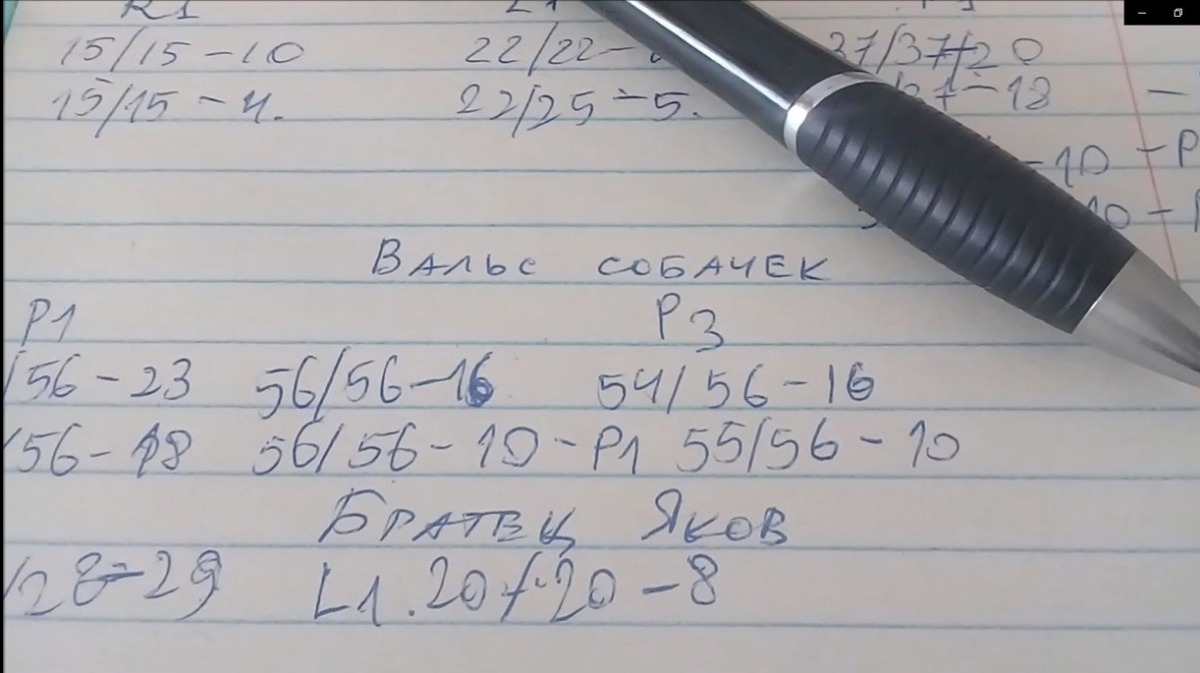 R1 L1
15/15-10 22/22- 37/37-20
15/15-4. 22/25-5. /37-18 -
-10 -P
10-P
Вальс собачек
P1 P3
/56-23 56/56-16 54/56-16
/56-18 56/56-10-P1 55/56-10
Братец Яков
/28-29 L1. 20/20-8